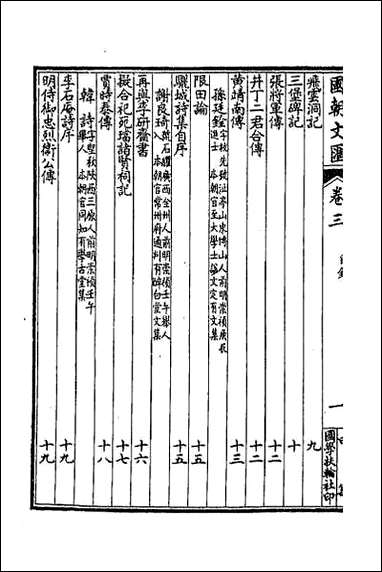 國朝文匯 卷三 目錄 一 國學扶輪社印
飛雲洞記 九
三堡碑記 十
張將軍傳 十二
井丁二君合傳 十二
黃靖南傳 十三
孫廷銓 字枚先號沚亭山東博山人前明崇禎庚辰進士 本朝官至大學士諡文定有文集
限田論 十五
驪城詩集自序 十五
謝良琦 號石臞廣西全州人前明崇禎壬午舉人入 本朝官常州府通判有醉白堂文集
再與李研齋書 十六
擬合祀苑璫諸賢祠記 十七
賣時泰傳 十八
韓詩 字聖秋陝西三原人前明崇禎壬午舉人 本朝官同知有學古堂集
李石庵詩序 十九
明侍御忠烈衛公傳 十九